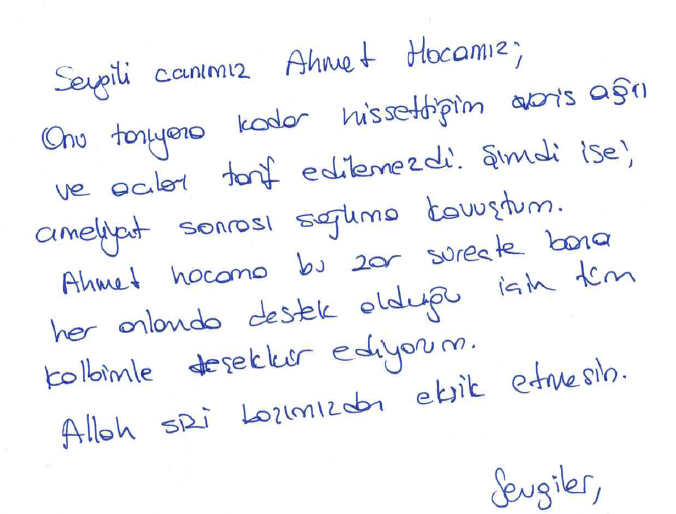 Sevgili canımız Ahmet Hocamız;
Onu tanıyana kadar hissettiğim varis ağrı
ve acıları tarif edilemezdi. Şimdi ise;
ameliyat sonrası sağlıma kavuştum.
Ahmet hocama bu zor süreçte bana
her anlamda destek olduğu için tüm
kalbimle teşekkür ediyorum.
Allah sizi başımızdan eksik etmesin.
Sevgiler,